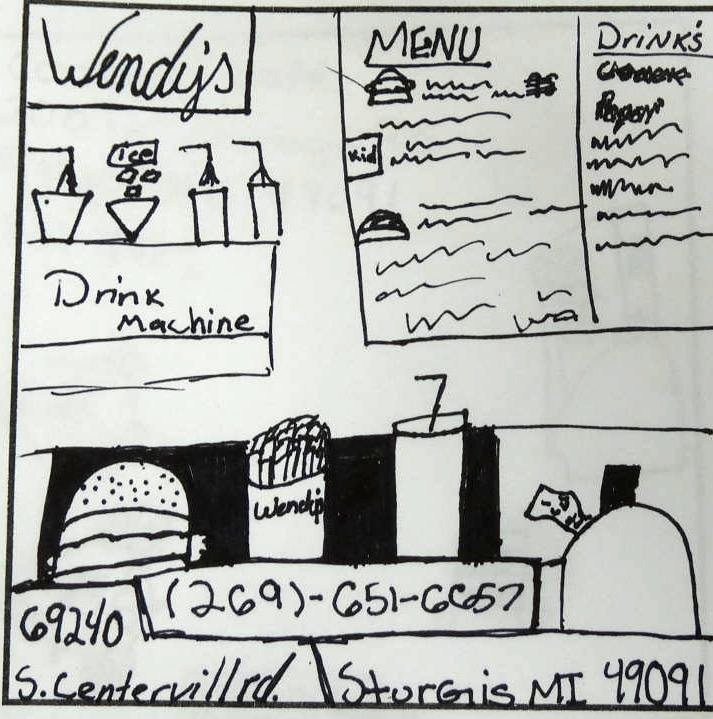 Wendy's
MENU
Drink's
Ice
Kid
Drink
Machine
Wendy's
(269)-651-6657
69240
S. Centervill rd.
Sturgis MI 49091